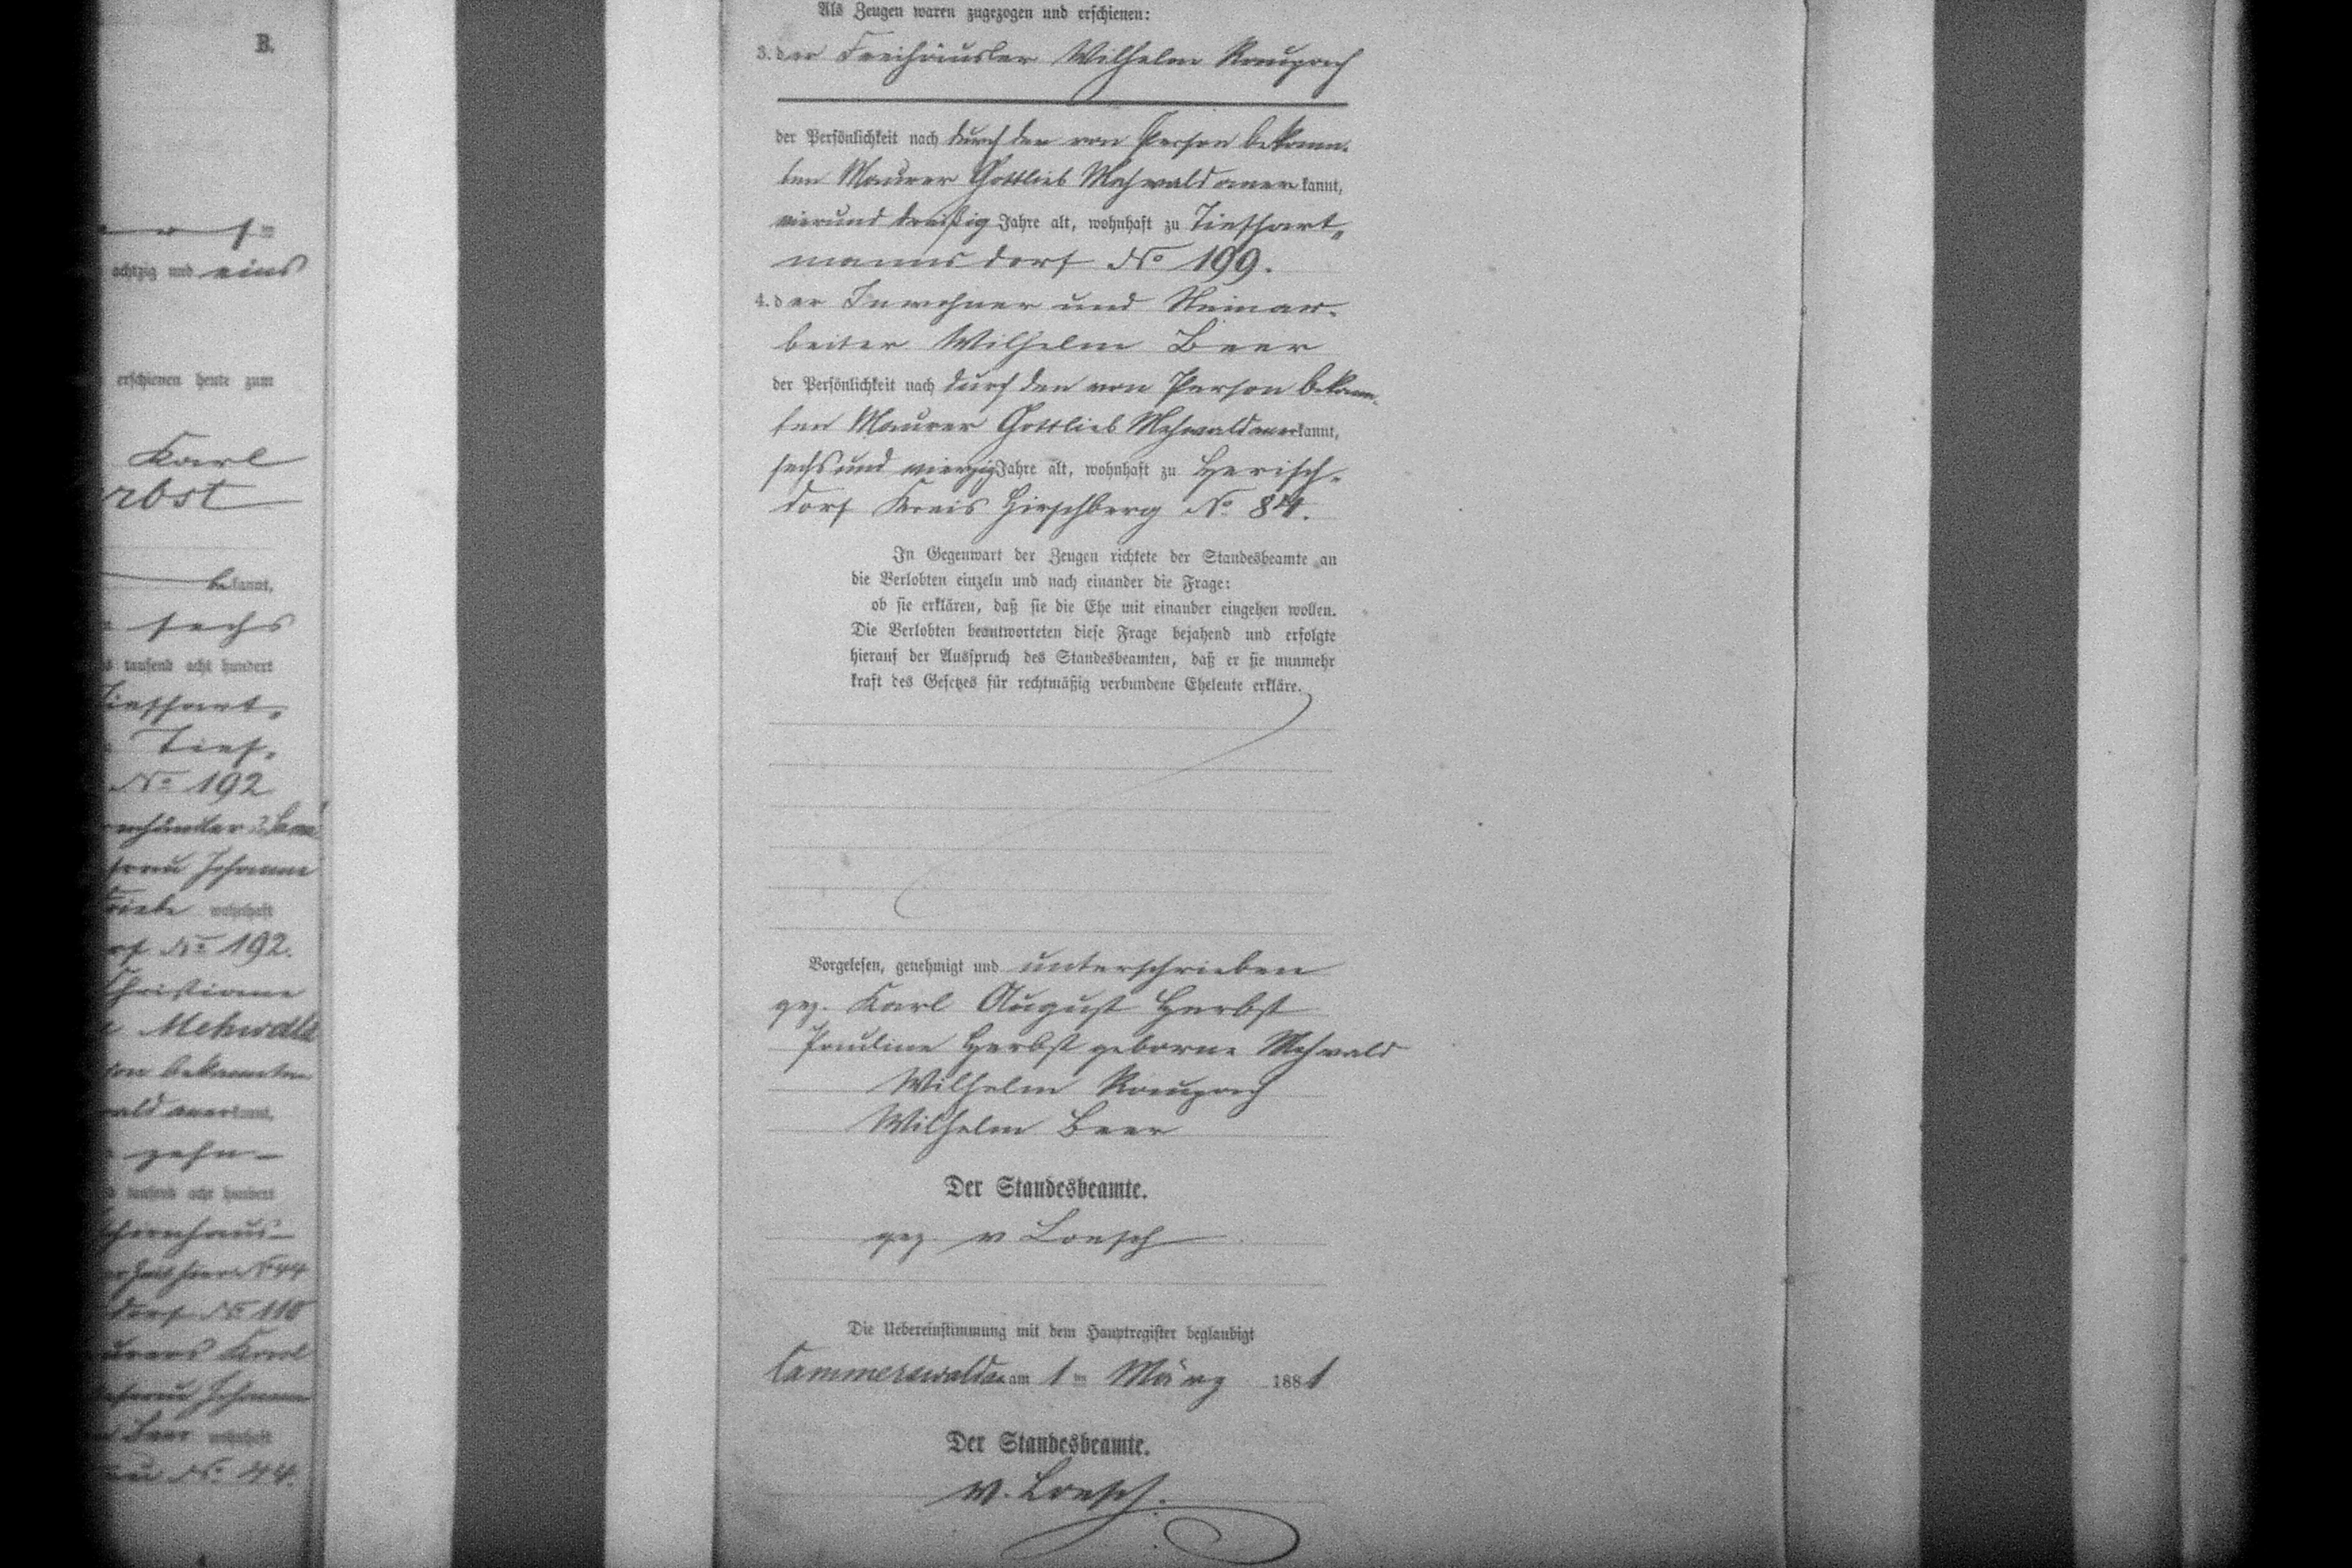 B.
achtzig und eins
erschienen heute zum
Karl
rbst
bekannt,
sechs
tausend acht hundert
Tiefhart„
Tief„
No 192
frau Johanne
wohnhaft
rf No 192.
Christiane
Mehwald
son bekannten
wald anerkannt,
zehn
tausend acht hundert
dorf No 110
Karl
Johanne
Beer wohnhaft
No 44.
Als Zeugen waren zugezogen und erschienen:
3. der Freihäusler Wilhelm Raupach
der Persönlichkeit nach durch den von Person bekann-
ten Maurer Gottlieb Mehwald anerkannt,
vierund dreißig Jahre alt, wohnhaft zu Tiefhart„
mannsdorf No 199.
4. der Inwohner und Steinar-
beiter Wilhelm Beer
der Persönlichkeit nach durch den von Person bekann-
ten Maurer Gottlieb Mehwald anerkannt,
sechsund vierzig Jahre alt, wohnhaft zu Herisch-
dorf Kreis Hirschberg No 84.
In Gegenwart der Zeugen richtete der Standesbeamte an
die Verlobten einzeln und nach einander die Frage:
ob sie erklären, daß sie die Ehe mit einander eingehen wollen.
Die Verlobten beantworteten diese Frage bejahend und erfolgte
hierauf der Ausspruch des Standesbeamten, daß er sie nunmehr
kraft des Gesetzes für rechtmäßig verbundene Eheleute erkläre.
Vorgelesen, genehmigt und unterschrieben
gez. Karl August Herbst
Pauline Herbst geborne Mehwald
Wilhelm Raupach
Wilhelm Beer
Der Standesbeamte.
gez. v Loesch
Die Uebereinstimmung mit dem Hauptregister beglaubigt
Cammerswaldau am 1 ten März 1881
Der Standesbeamte.
v. Loesch.